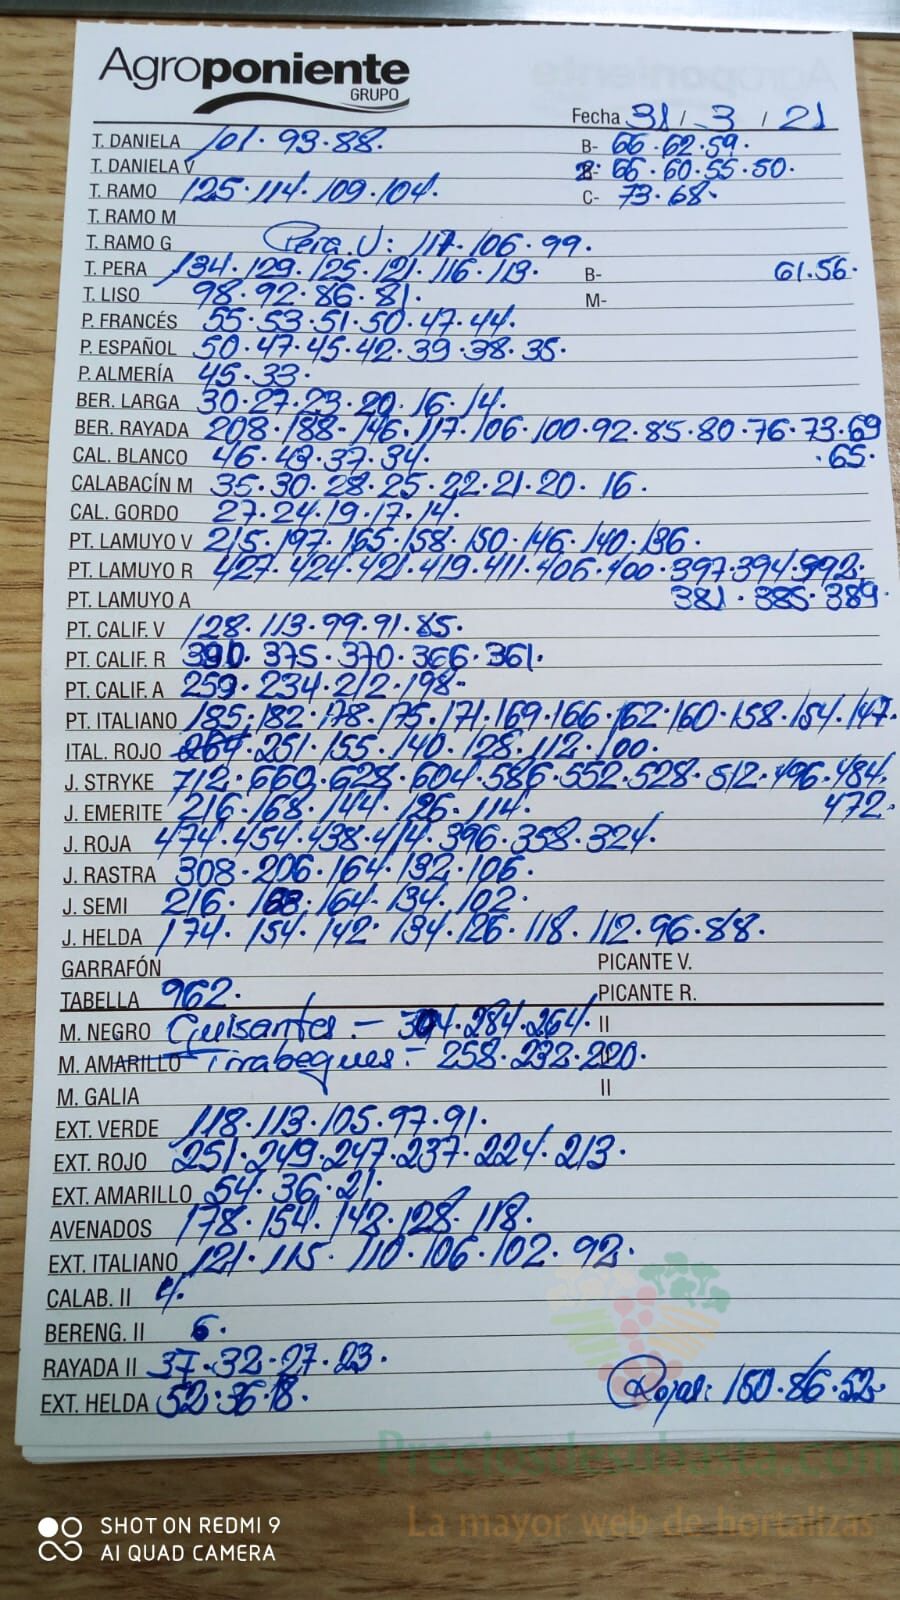 Agroponiente
GRUPO
Fecha 31 / 3 / 21
T. DANELA 101. 93. 88. B- 66. 62. 59.
T. DANIELA V 2- 66. 60. 55. 50.
T. RAMO 125. 114. 109. 104. C- 73. 68.
T. RAMO M
T. RAMO G Pera. V: 117. 106. 99.
T. PERA 134. 129. 125. 121. 116. 113. B- 61. 56.
T. LISO 98. 92. 86. 81. M-
P. FRANCÉS 55. 53. 51. 50. 47. 44.
P. ESPAÑOL 50. 47. 45. 42. 39. 38. 35.
P. ALMERÍA 45. 33.
BER. LARGA 30. 27. 23. 20. 16. 14.
BER. RAYADA 208. 188. 146. 117. 106. 100. 92. 85. 80. 76. 73. 69
CAL. BLANCO 46. 43. 37. 34. . 65.
CALABACÍN M 35. 30. 28. 25. 22. 21. 20. 16.
CAL. GORDO 27. 24. 19. 17. 14.
PT. LAMUYO V 215. 197. 165. 158. 150. 146. 140. 136.
PT. LAMUYO R 427. 424. 421. 419. 411. 406. 400. 397. 394. 392.
PT. LAMUYO A 381. 385. 389.
PT. CALIF. V 128. 113. 99. 91. 85.
PT. CALIF. R 390. 375. 370. 366. 361.
PT. CALIF. A 259. 234. 212. 198.
PT. ITALIANO 185. 182. 178. 175. 171. 169. 166. 162. 160. 158. 154. 147.
ITAL. ROJO 269. 251. 155. 140. 128. 112. 100.
J. STRYKE 712. 660. 628. 604. 586. 552. 528. 512. 496. 484.
J. EMERITE 216. 168. 144. 126. 114. 472.
J. ROJA 474. 454. 438. 414. 396. 358. 324.
J. RASTRA 308. 206. 164. 132. 106.
J. SEMI 216. 188. 164. 134. 102.
J. HELDA 174. 154. 142. 134. 126. 118. 112. 96. 88.
GARRAFÓN PICANTE V.
TABELLA 962. PICANTE R.
M. NEGRO Guisantes - 304. 284. 264. II
M. AMARILLO Tirabeques - 258. 232. 220.
M. GALIA II
EXT. VERDE 118. 113. 105. 97. 91.
EXT. ROJO 251. 249. 247. 237. 224. 213.
EXT. AMARILLO 54. 36. 21.
AVENADOS 178. 154. 142. 128. 118.
EXT. ITALIANO 121. 115. 110. 106. 102. 92.
CALAB. II 4.
BERENG. II 6.
RAYADA II 37. 32. 27. 23.
EXT. HELDA 52. 36. 18. Rojas: 150. 86. 52.
Preciosdesubasta.com
La mayor web de hortalizas
SHOT ON REDMI 9
AI QUAD CAMERA